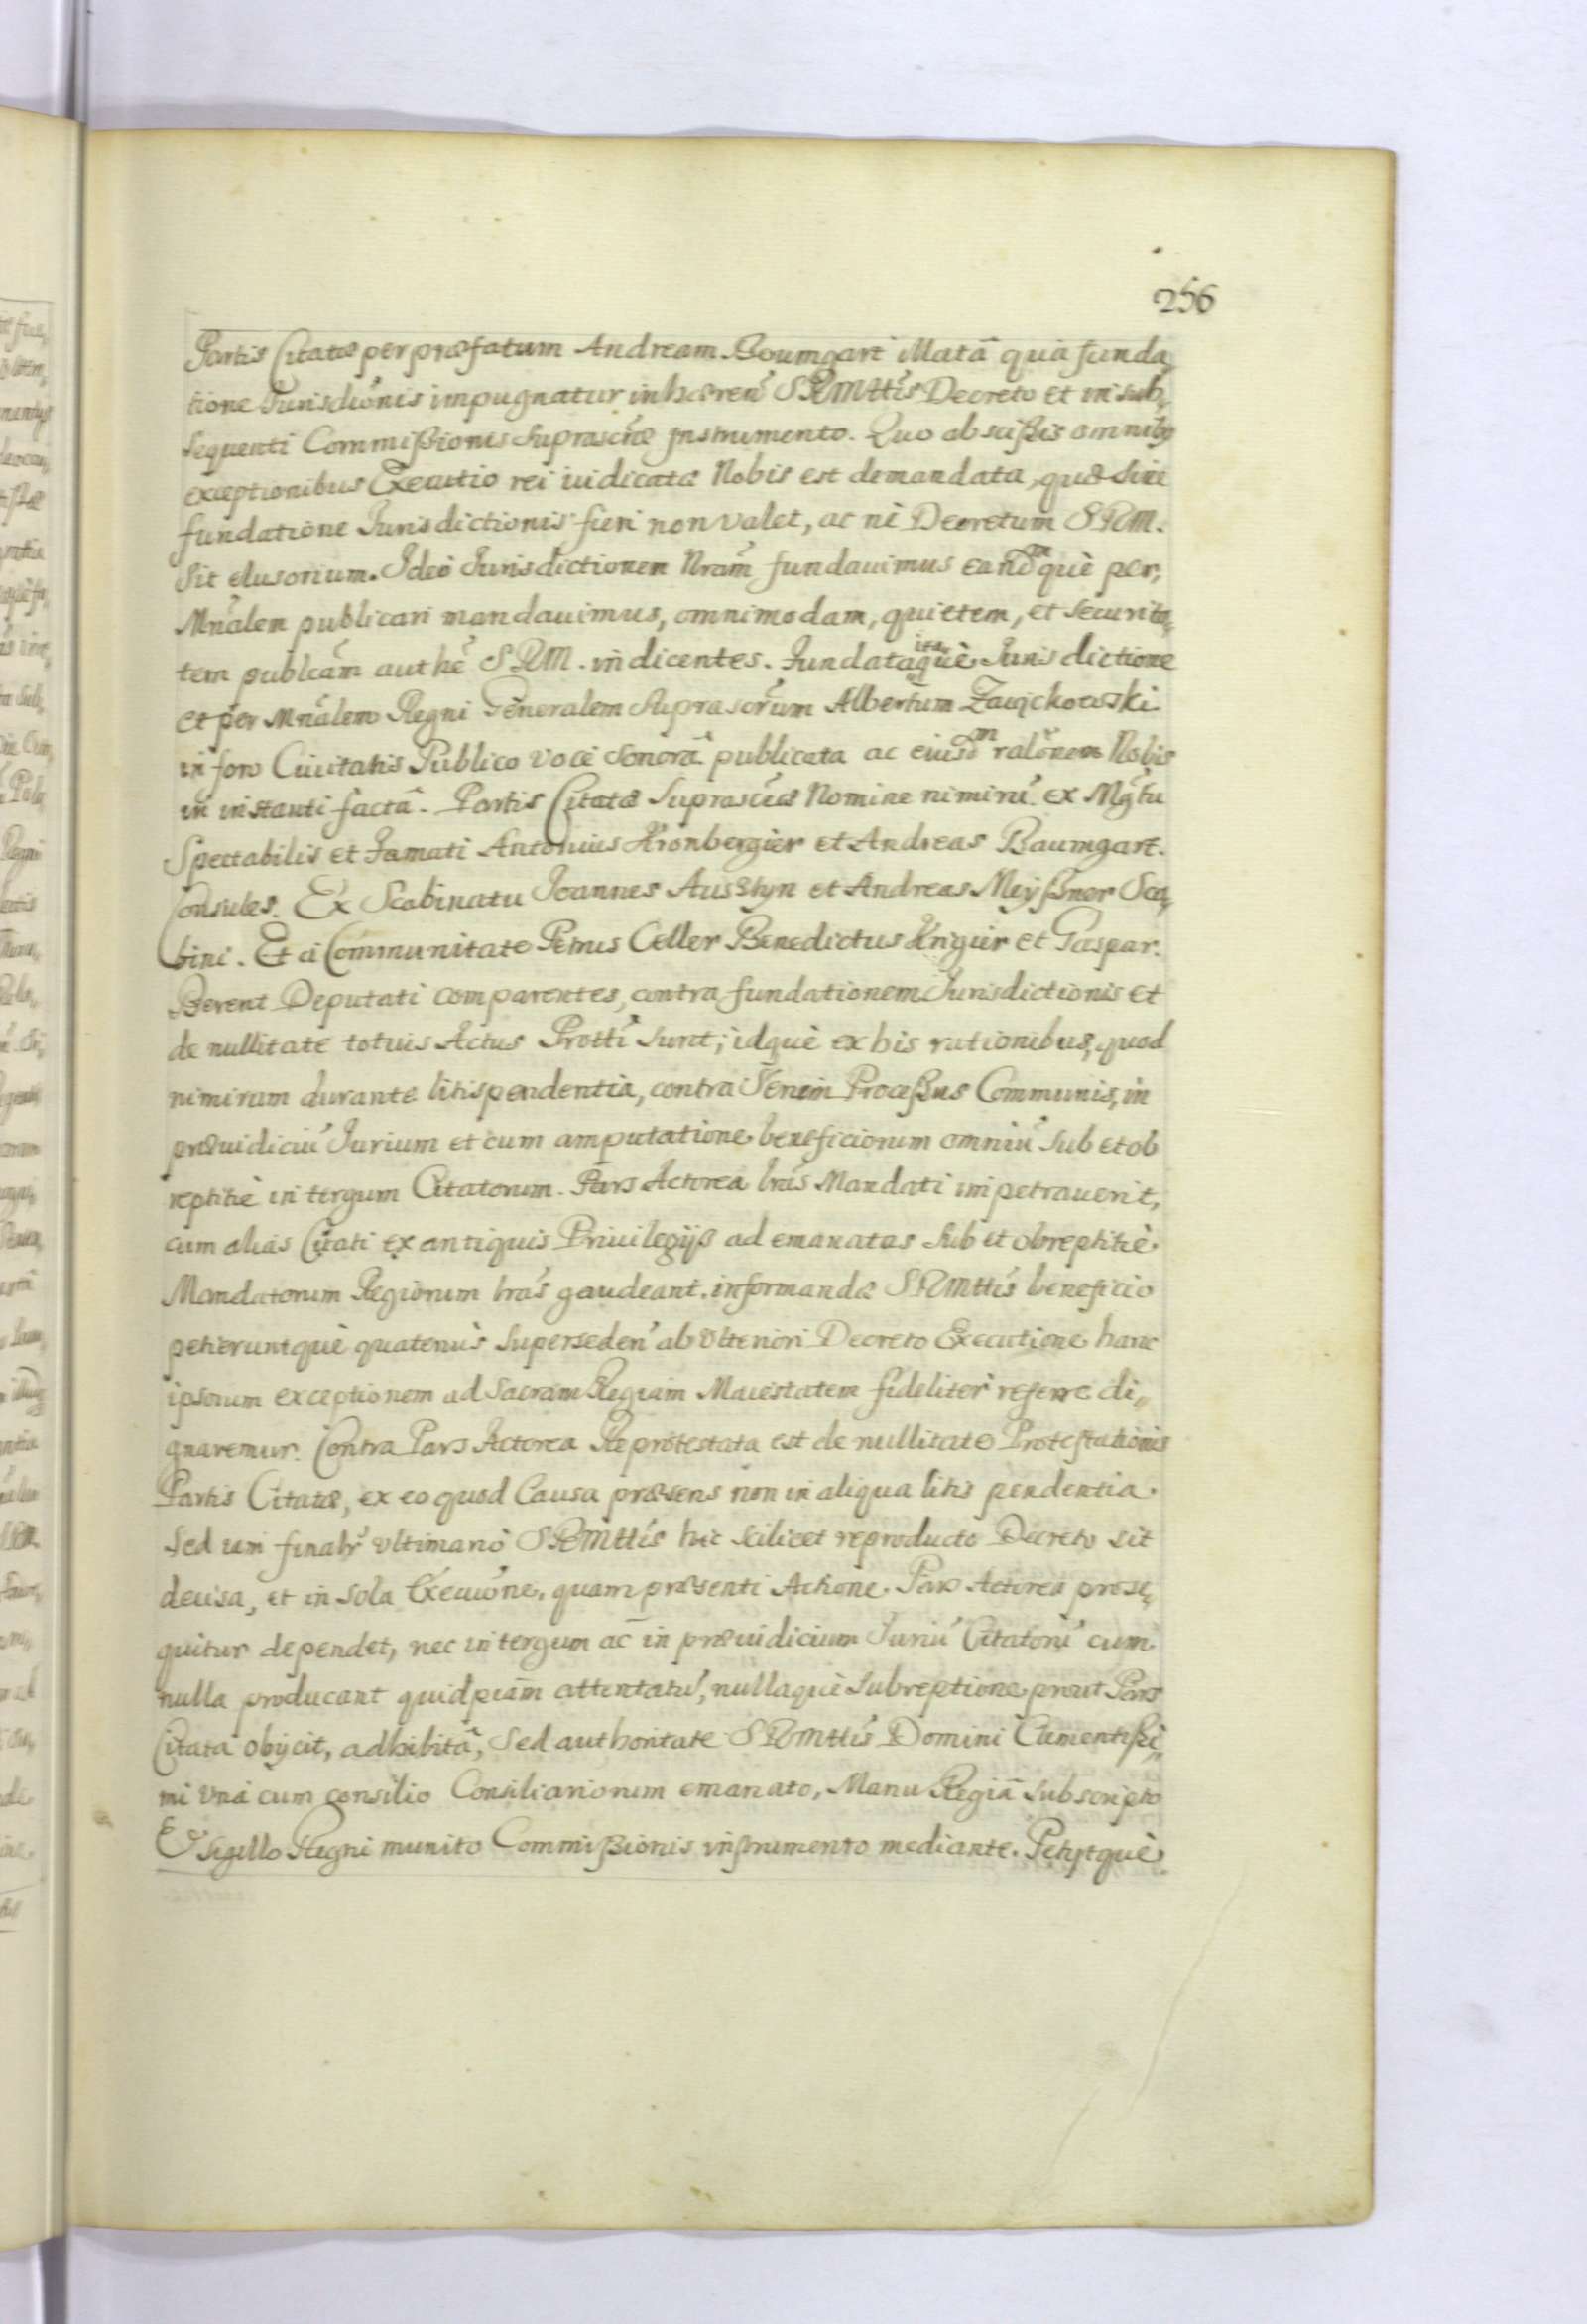 256
Partis Citatæ per præfatum Andream Boumgart illatâ quia funda„
tione Jurisdiónis impugnatur inhæren̄ SRMttis Decreto et in sub„
sequenti Commißionis suprascr̄æ Instrumento. Quo abscißis omnibꝯ
exceptionibus Executio rei iudicatæ Nobis est demandata, quæ sine
fundatione Jurisdictionis fieri non valet, ac nè Decretum SRM.
sit elusorium. Ideò Jurisdictionem Nram̄ fundauimus eandᵐquè per„
Mnālem publicari mandauimus, omnimodam, quietem, et securita„
tem publcām autħe SRM. indicentes. Fundata itaquè Jurisdictione
et per Mnālem Regni Generalem suprascrūm Albertum Zaiączkowski
in foro Ciuitatis Publico voce sonorâ publicata ac eiusdᵐ ralōnem Nobis
in instanti factâ. Partis Citatæ suprascr̄æ Nomine nimirū ex Mgr̄tu
Spectabilis et Famati Antonius Kronbergier et Andreas Baumgart.
Consules. Ex Scabinatu Joannes Ausstyn et Andreas Meyßner Sca„
bini. Et à Communitate Petrus Celler Benedictus Knigier et Gaspar.
Berent Deputati comparentes, contra fundationem Jurisdictionis et
de nullitate totius Actus Protti sunt; idquè ex his rationibus, quod
nimirum durante litispendentia, contra Seriem Proceßus Communis, in
præiudiciū Jurium et cum amputatione beneficiorum omniū sub et ob
reptitiè in tergum Citatorum. Pars Actorea lrās Mandati impetrauerit,
cum alias Citati ex antiquis Priuilegijs ad emanatas sub et obreptitiè
Mandatorum Regiorum lrās gaudeant. informandæ SRMttis beneficio
petieruntquè quatenùs superseden̄ ab vlteriori Decreto Executione hanc
ipsorum exceptionem ad Sacram Regiam Maiestatem fideliter referre di„
gnaremur. Contra Pars Actorea Reprotestata est de nullitate Protestationis
Partis Citatæ, ex eo quod Causa præsens non in aliqua litis pendentia.
sed iam finalr̄ vltimariò SRMttis hic scilicet reproducto Decreto sit
decisa, et in sola Executōne, quam præsenti Actione. Pars Actorea prose„
quitur dependet, nec in tergum ac in præiudicium Juriū Citatorū cum
nulla producant quidpiam attentatū, nullaquè subreptione prout Pars
Citata obijcit, adhibitâ, sed authoritate SRMttis Domini Clementißi„
mi vnà cum consilio Consiliariorum emanato, Manu Regiâ subscripto
Et Sigillo Regni munito Commißionis instrumento mediante. Petijtquè